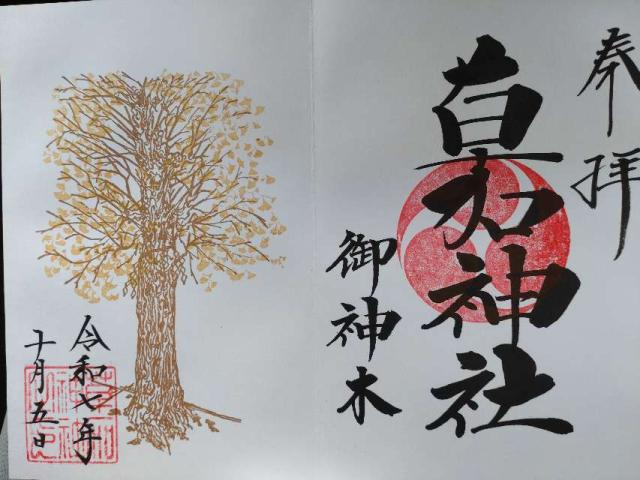 奉拝
神社
御神木
令和七年
十月五日